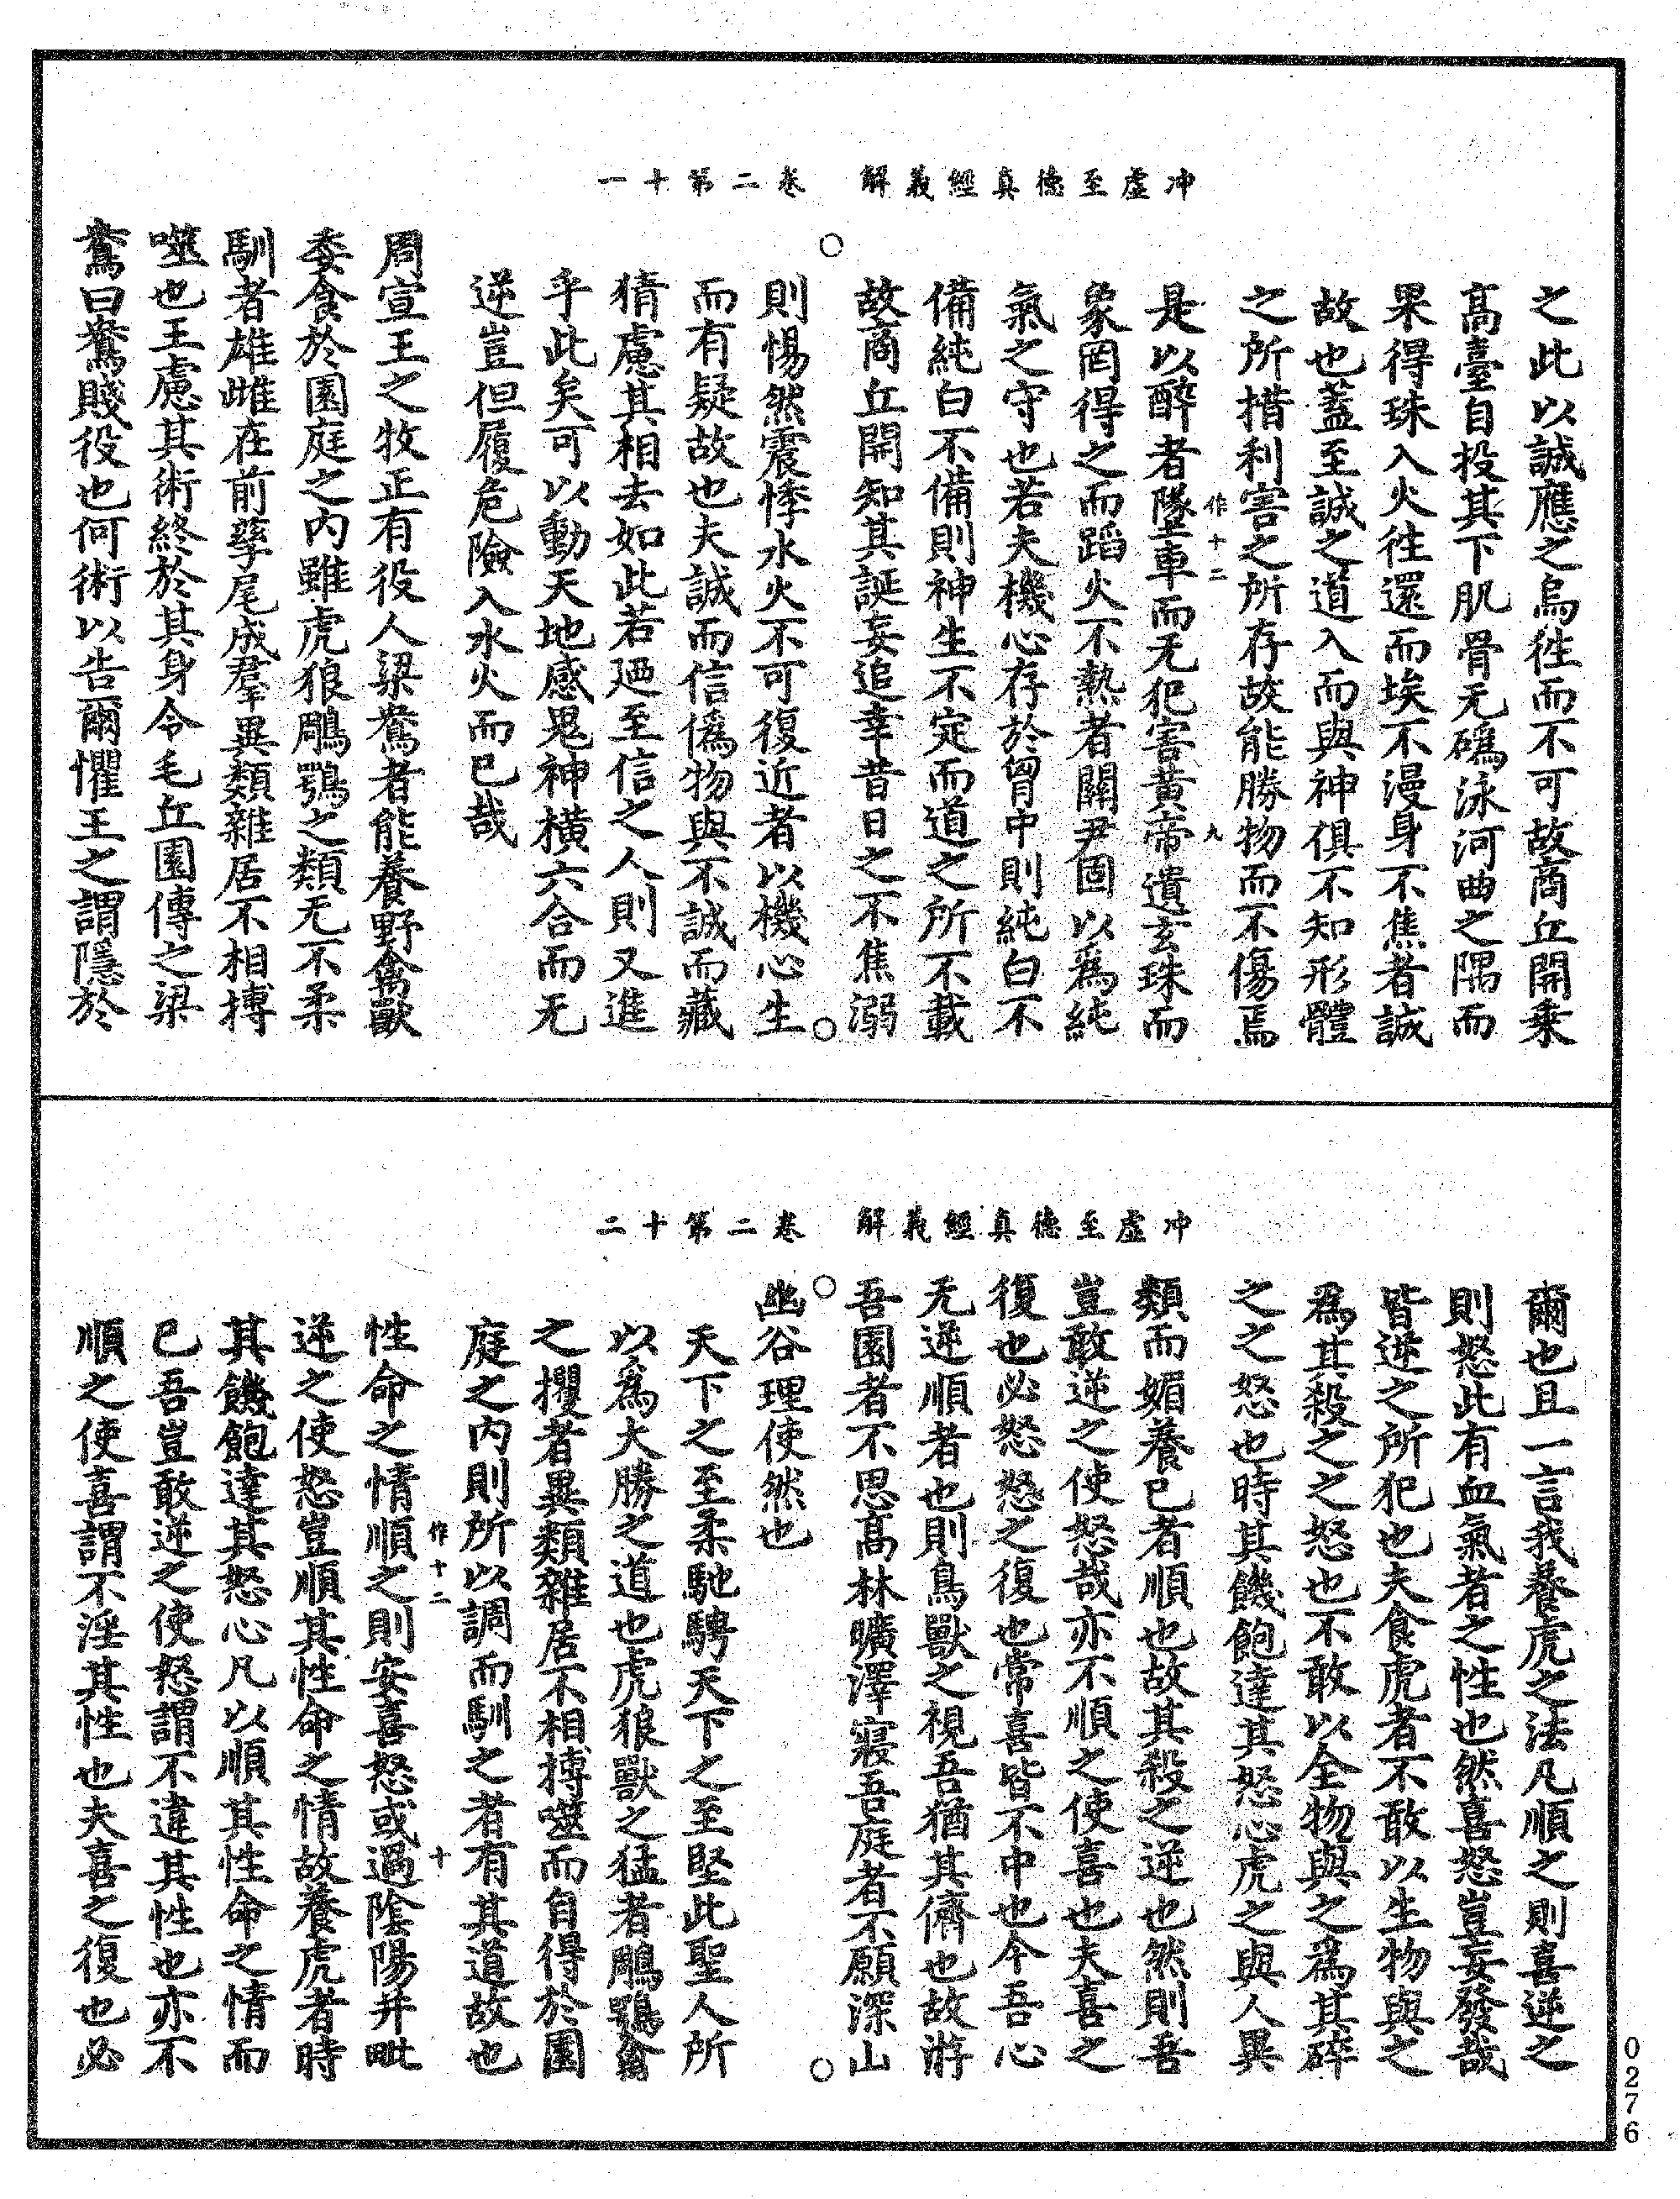 冲虛至德真經義解　卷二第十一
之此以誠應之烏徃而不可故商丘開乗
髙臺自投其下肌骨无䃣泳河曲之隅而
果得珠入火徃還而埃不漫身不焦者誠
故也蓋至誠之道入而與神俱不知形體
之所措利害之所存故能勝物而不傷焉
作十二　九
是以醉者墜車而无犯害黄帝遺玄珠而
象罔得之而蹈火不熱者關尹固以爲純
氣之守也若夫機心存於胷中則純白不
備純白不備則神生不定而道之所不載
故商丘開知其誕妄追幸昔日之不焦溺
則惕然震悸水火不可復近者以機心生
而有疑故也夫誠而信僞物與不誠而藏
猜慮其相去如此若廼至信之人則又進
乎此矣可以動天地感鬼神横六合而无
逆豈但履危險入水火而已哉
周宣王之牧正有役人梁鴦者能養野禽獸
委食於園庭之内雖虎狼鵰鶚之類无不柔
馴者雄雌在前孳尾成羣異類雜居不相搏
噬也王慮其術終於其身令毛丘園傳之梁
鴦曰鴦賤役也何術以告爾懼王之謂隱於
冲虛至德真經義解　卷二第十二
爾也且一言我養虎之法凡順之則喜逆之
則怒此有血氣者之性也然喜怒豈妄發哉
皆逆之所犯也夫食虎者不敢以生物與之
爲其殺之之怒也不敢以全物與之爲其碎
之之怒也時其饑飽達其怒心虎之與人異
類而媚養已者順也故其殺之逆也然則吾
豈敢逆之使怒哉亦不順之使喜也夫喜之
復也必怒怒之復也常喜皆不中也今吾心
无逆順者也則鳥獸之視吾猶其儕也故游
吾園者不思髙林曠澤寢吾庭者不願深山
幽谷理使然也
天下之至柔馳騁天下之至堅此聖人所
以爲大勝之道也虎狼獸之猛者鵰鶚禽
之攫者異類雜居不相搏噬而自得於園
庭之内則所以調而馴之者有其道故也
作十二　十
性命之情順之則安喜怒或過陰陽并毗
逆之使怒豈順其性命之情故養虎者時
其饑飽達其怒心凡以順其性命之情而
已吾豈敢逆之使怒謂不違其性也亦不
順之使喜謂不淫其性也夫喜之復也必
0276